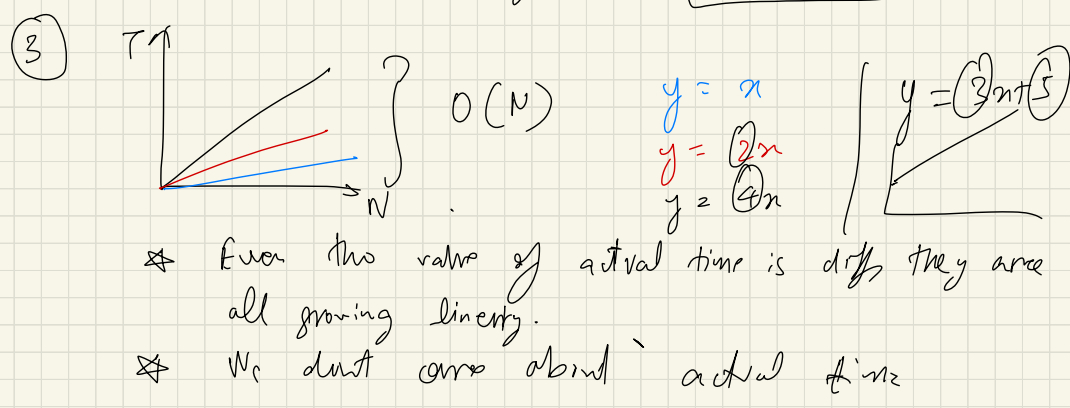 3
T
N
O(N)
y = x
y = 2x
y = 4x
y = 3x+5
☆ Even tho value of actual time is diff, they are
all growing linerly.
☆ We dont care about actual time